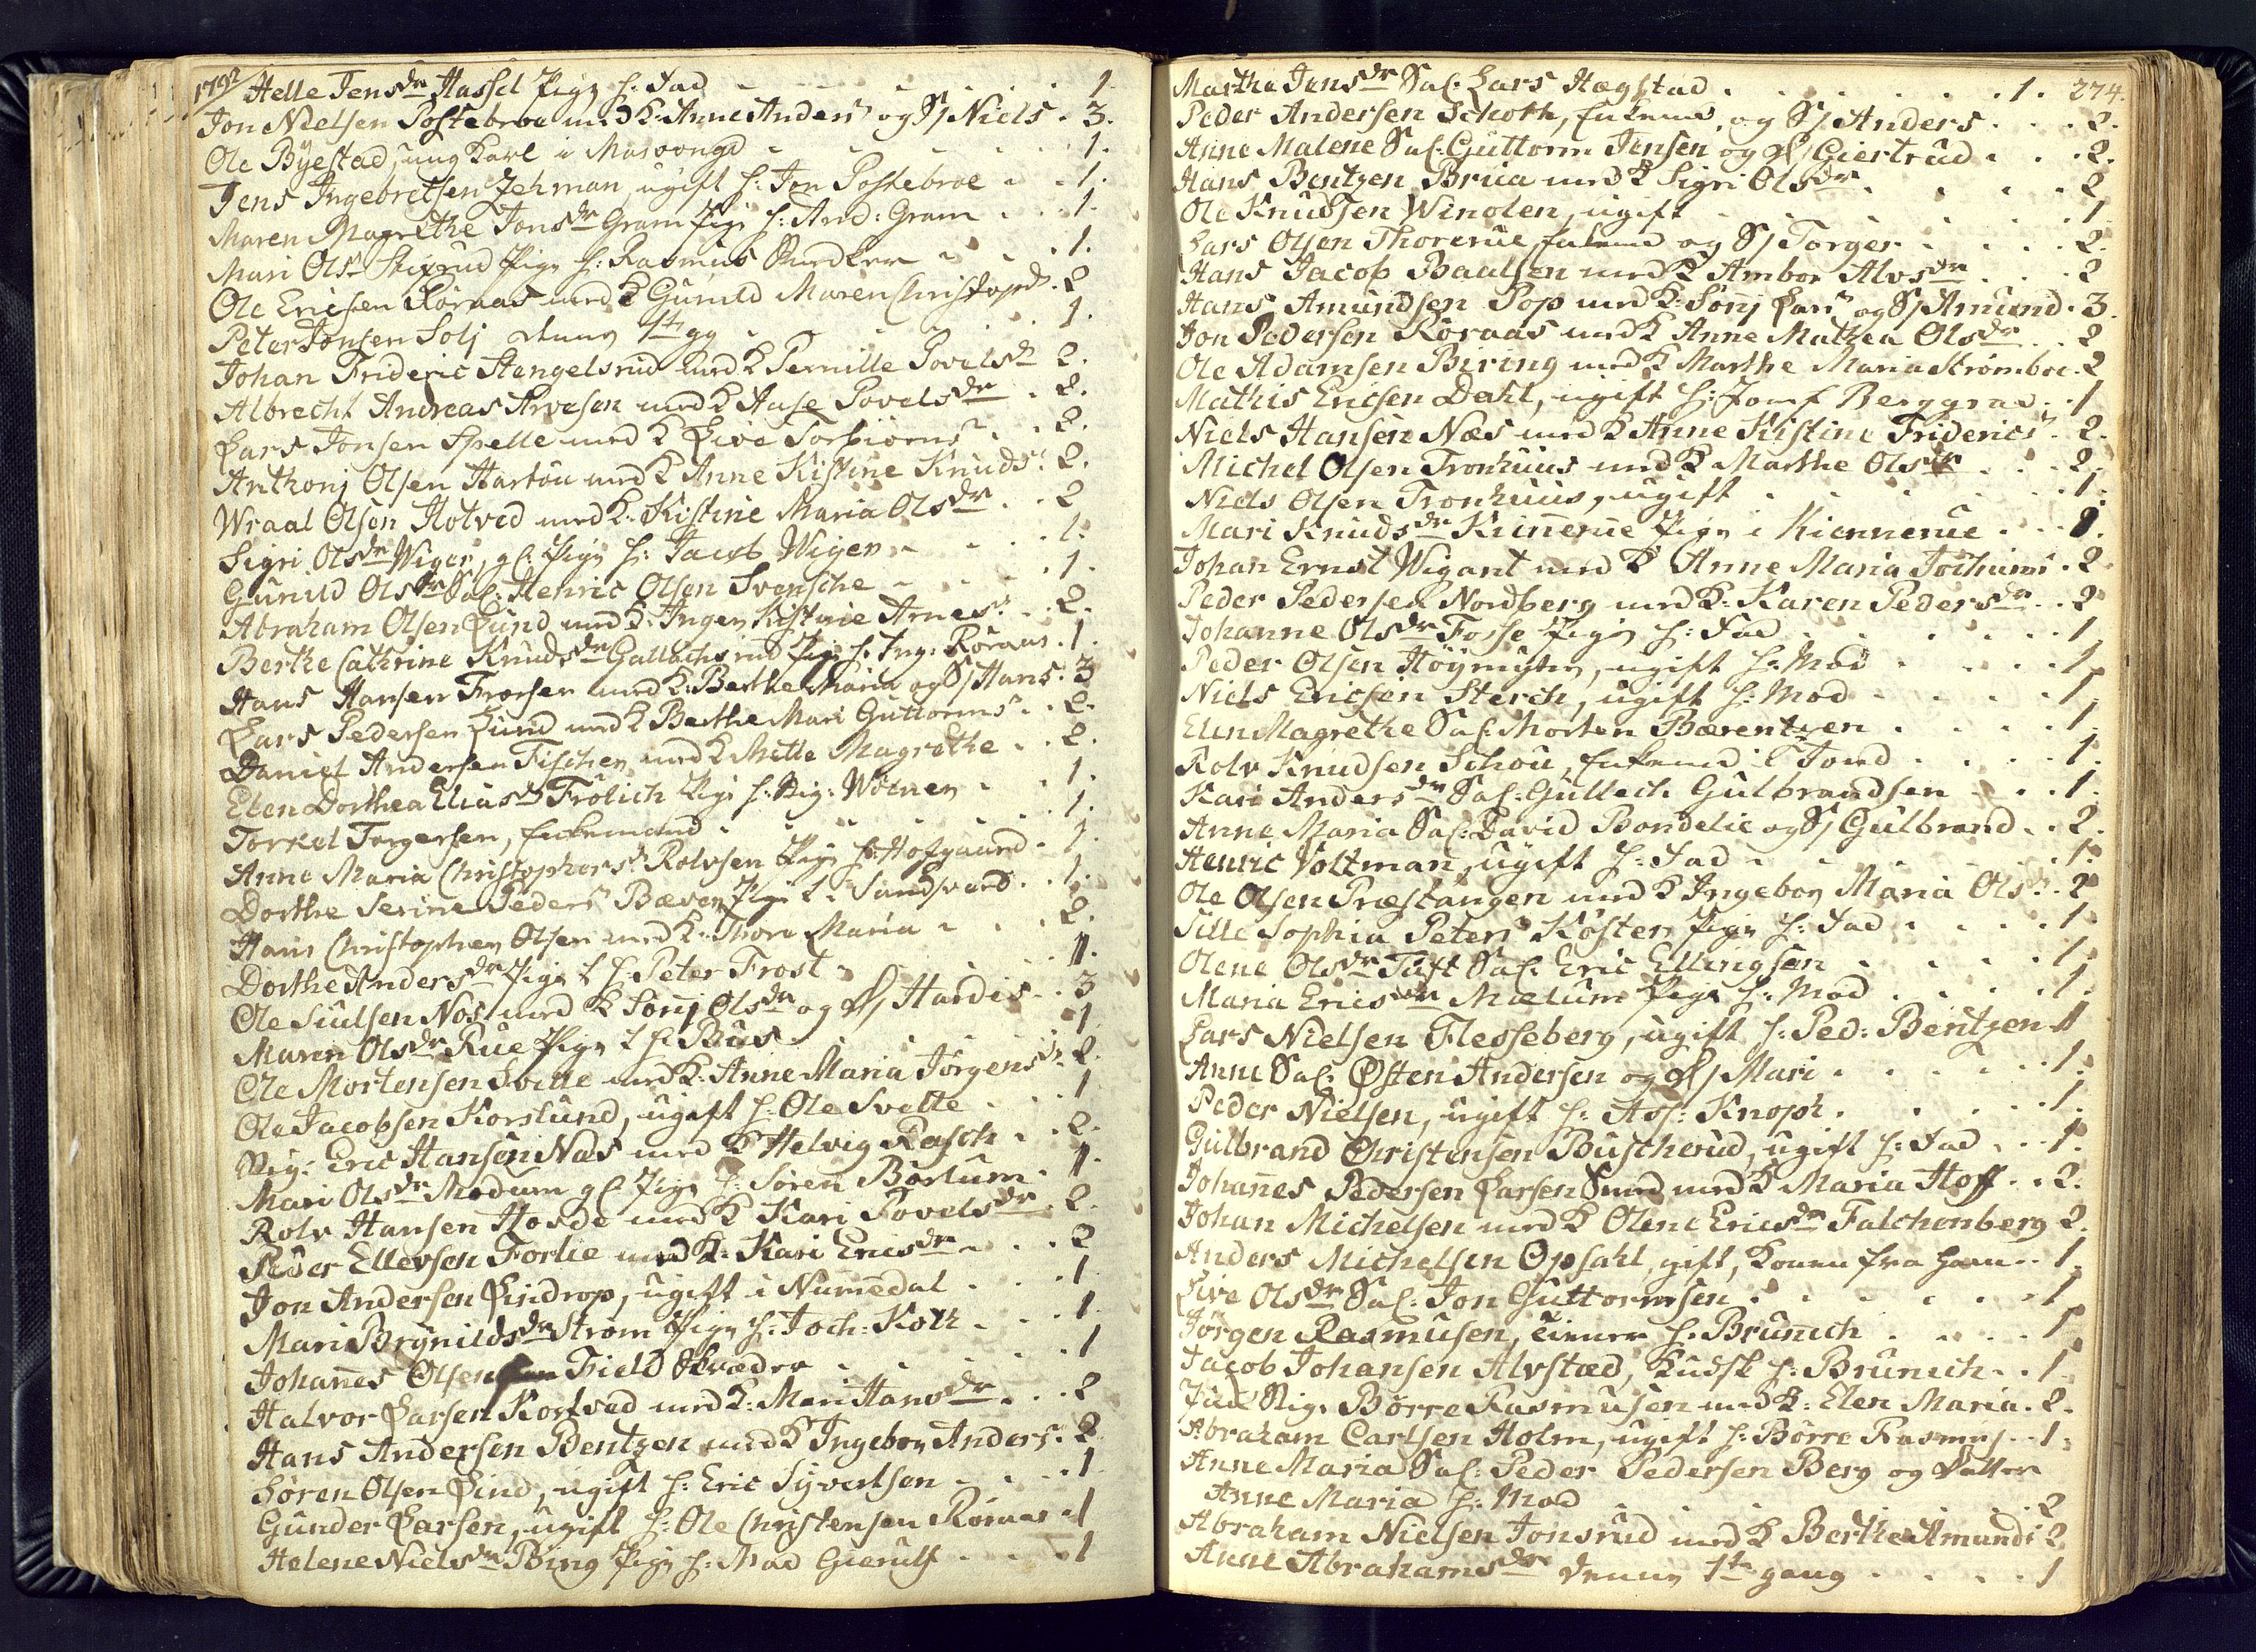 1792
Helle Jensdr Hassel Pige h: Fad 1.
Jon Nielsen Postebroe med K: Anne Anders og S/ Niels 3.
Ole Byestad, ung Karl i 1.
Jens Ingebretsen Zehman, ugift h: Jon Postebroe 1.
Maren Magrethe Jonsdr Gram Pige h: And: Gram 1.
Mari Ols Pige h: Rasmus 1.
Ole Ericsen Röraas med K Gunild Maren Christophd 2
Peter Jonsen Solj denne 1te gg 1.
Johan Frideric Stengelsrud med K Pernille Povelsd 2.
Albrecht Andreas Arvesen med K Aase Povelsdr 2.
Lars Jonsen Spelle med K Live Torbiörns 2.
Anthonj Olsen Hartou med K Anne Kistine Knuds 2.
Wraal Olsen Hotved med K: Kistine Maria Olsdr 2
Sigri Olsdr Wigen, gl: Pige h: Jacob Wigen 1.
Gunild Olsdr Sal: Henric Olsen Svensche 1.
Abraham Olsen Lund med K: Inger Kistine Arnes 2.
Berthe Cathrine Knudsdr Gallachsrud Pige h: Ing: Röraas 1.
Hans Hansen Frorsen med K: Berthe Maria og S/ Hans 3
Lars Pedersen Lund med K Berthe Mari Guttorms 2.
Daniel Andersen Fischer med K Mette Magrethe 2.
Elen Dorthea Eliasd Frölich Pige h: Sig: Wörner 1.
Torkel Torgersen, Enkemand 1.
Anne Maria Christophers Rolvsen Pige h: Hofgaard 1.
Dorthe Serine Peders Bæver Pige i Sandsværd 1.
Hans Christopher Olsen med K: Thore Maria 2.
Dorthe Andersdr Pige t h: Peter Frost 1.
Ole Siulsen Nos med K Sönj Olsdr og D/ Hardis 3
Maren Olsdr Rue Pige t h: Bus 1
Ole Mortensen Svette med K: Anne Maria Jörgensd 2.
Ole Jacobsen Korslund, ugift h: Ole Svette 1
Sig: Eric Hansen Næs med K Helvig Rasch 2.
Mari Olsdr Modum gl Pige h: Sören Borlum 1.
Rolv Hansen Hosde med K Kari Povelsdr 2.
Peder Ellevsen Forlie med K: Kari Ericsdr 2
Jon Andersen Lindrop, ugift i Numedal 1
Mari Brynildsdr Ström Pige h: Joch: Koth 1
Johannes Olsen Field Skræder 1
Halvor Larsen Kortved med K: Mari Hansdr 2
Hans Andersen Bentzen med K Ingebor Anders 2
Sören Olsen Lind, ugift h: Eric Syvertsen 1
Gunder Larsen, ugift h: Ole Christensen Röraas 1
Helene Nielsdr Bing Pige h: Mad Gierulf 1
Marthe Jensdr Sal: Lars Hægstad 1. 274.
Peder Andersen Schoth, Enkemd, og S/ Anders 2.
Anne Malene Sal: Guttorm Jensen og D/ Giertrud 2.
Hans Bentzen Brua med K Sigri Olsdr 2
Ole Knudsen Winolen, ugift 1
Lars Olsen Thorerue, Enkemd og S/ Torger 2.
Hans Jacob Paulsen med K Ambor Alvsdr 2
Hans Amundsen Pop med K: Sönj Lars og S/ Amund 3.
Jon Pedersen Röraas med K Anne Mathea Olsdr 2
Ole Adamsen Biring med K Marthe Maria Strömboe 2
Mathis Ericsen Dahl, ugift h: Jomf Berggrav 1
Niels Hansen Næs med K Anne Kistine Friderics 2.
Michel Olsen Tronhuus med K Marthe Olsdr 2.
Niels Olsen Tronhuus, ugift 1.
Mari Knudsdr Kinnerue Pige i Kiennerue 1.
Johan Ernst Wigant med K Anne Maria Jochums 2.
Peder Pedersen Nordberg med K: Karen Pedersdr 2
Johanne Olsdr Fosse Pige h: Fad 1
Peder Olsen Höymyhr, ugift h: Mod 1.
Niels Ericsen Sterch, ugift h: Mod 1.
Elen Magrethe Sal: Morten Bærentzen 1.
Rolv Knudsen Schou, Enkemd i Jond 1.
Kari Andersdr Sal: Gullech Gulbrandsen 1.
Anne Maria Sal: David Bondelie og S/ Gulbrand 2.
Henric Voltman, ugift h: Fad 1.
Ole Olsen Præstangen med K Ingebor Maria Ols 2
Sille Sophia Peters Köster Pige h: Fad 1.
Olene Olsdr Tuft Sal: Eric Ellingsen 1.
Maria Ericsdr Mælum Pige h: Mod 1.
Lars Nielsen Flesseberg, ugift h: Ped: Bentzen 1
Anne Sal: Østen Andersen og D/ Mari 1.
Peder Nielsen, ugift h: Ass: Knoph 1.
Gulbrand Christensen Buscherud, ugift h: Fad 1.
Johannes Pedersen Larsen Smed med K Maria Hoff 2.
Johan Michelsen med K Olene Ericsdr Falchenberg 2.
Anders Michelsen Opsahl, gift, Konen fra ham 1.
Live Olsdr Sal: Jon Guttormsen 1
Jörgen Rasmusen, tiener h: Brunich 1.
Jacob Johansen Alvstad, Kudsk h: Brunich 1.
Sig: Börre Rasmusen med K: Elen Maria 2.
Abraham Carlsen Holm, ugift h: Börre Rasmus 1.
Anne Maria Sal: Peder Pedersen Berg og Datter
Anne Maria h: Mod 2
Abraham Nielsen Jonsrud med K Berthe Amunds 2.
Anne Abrahamsdr denne 1te gang 1